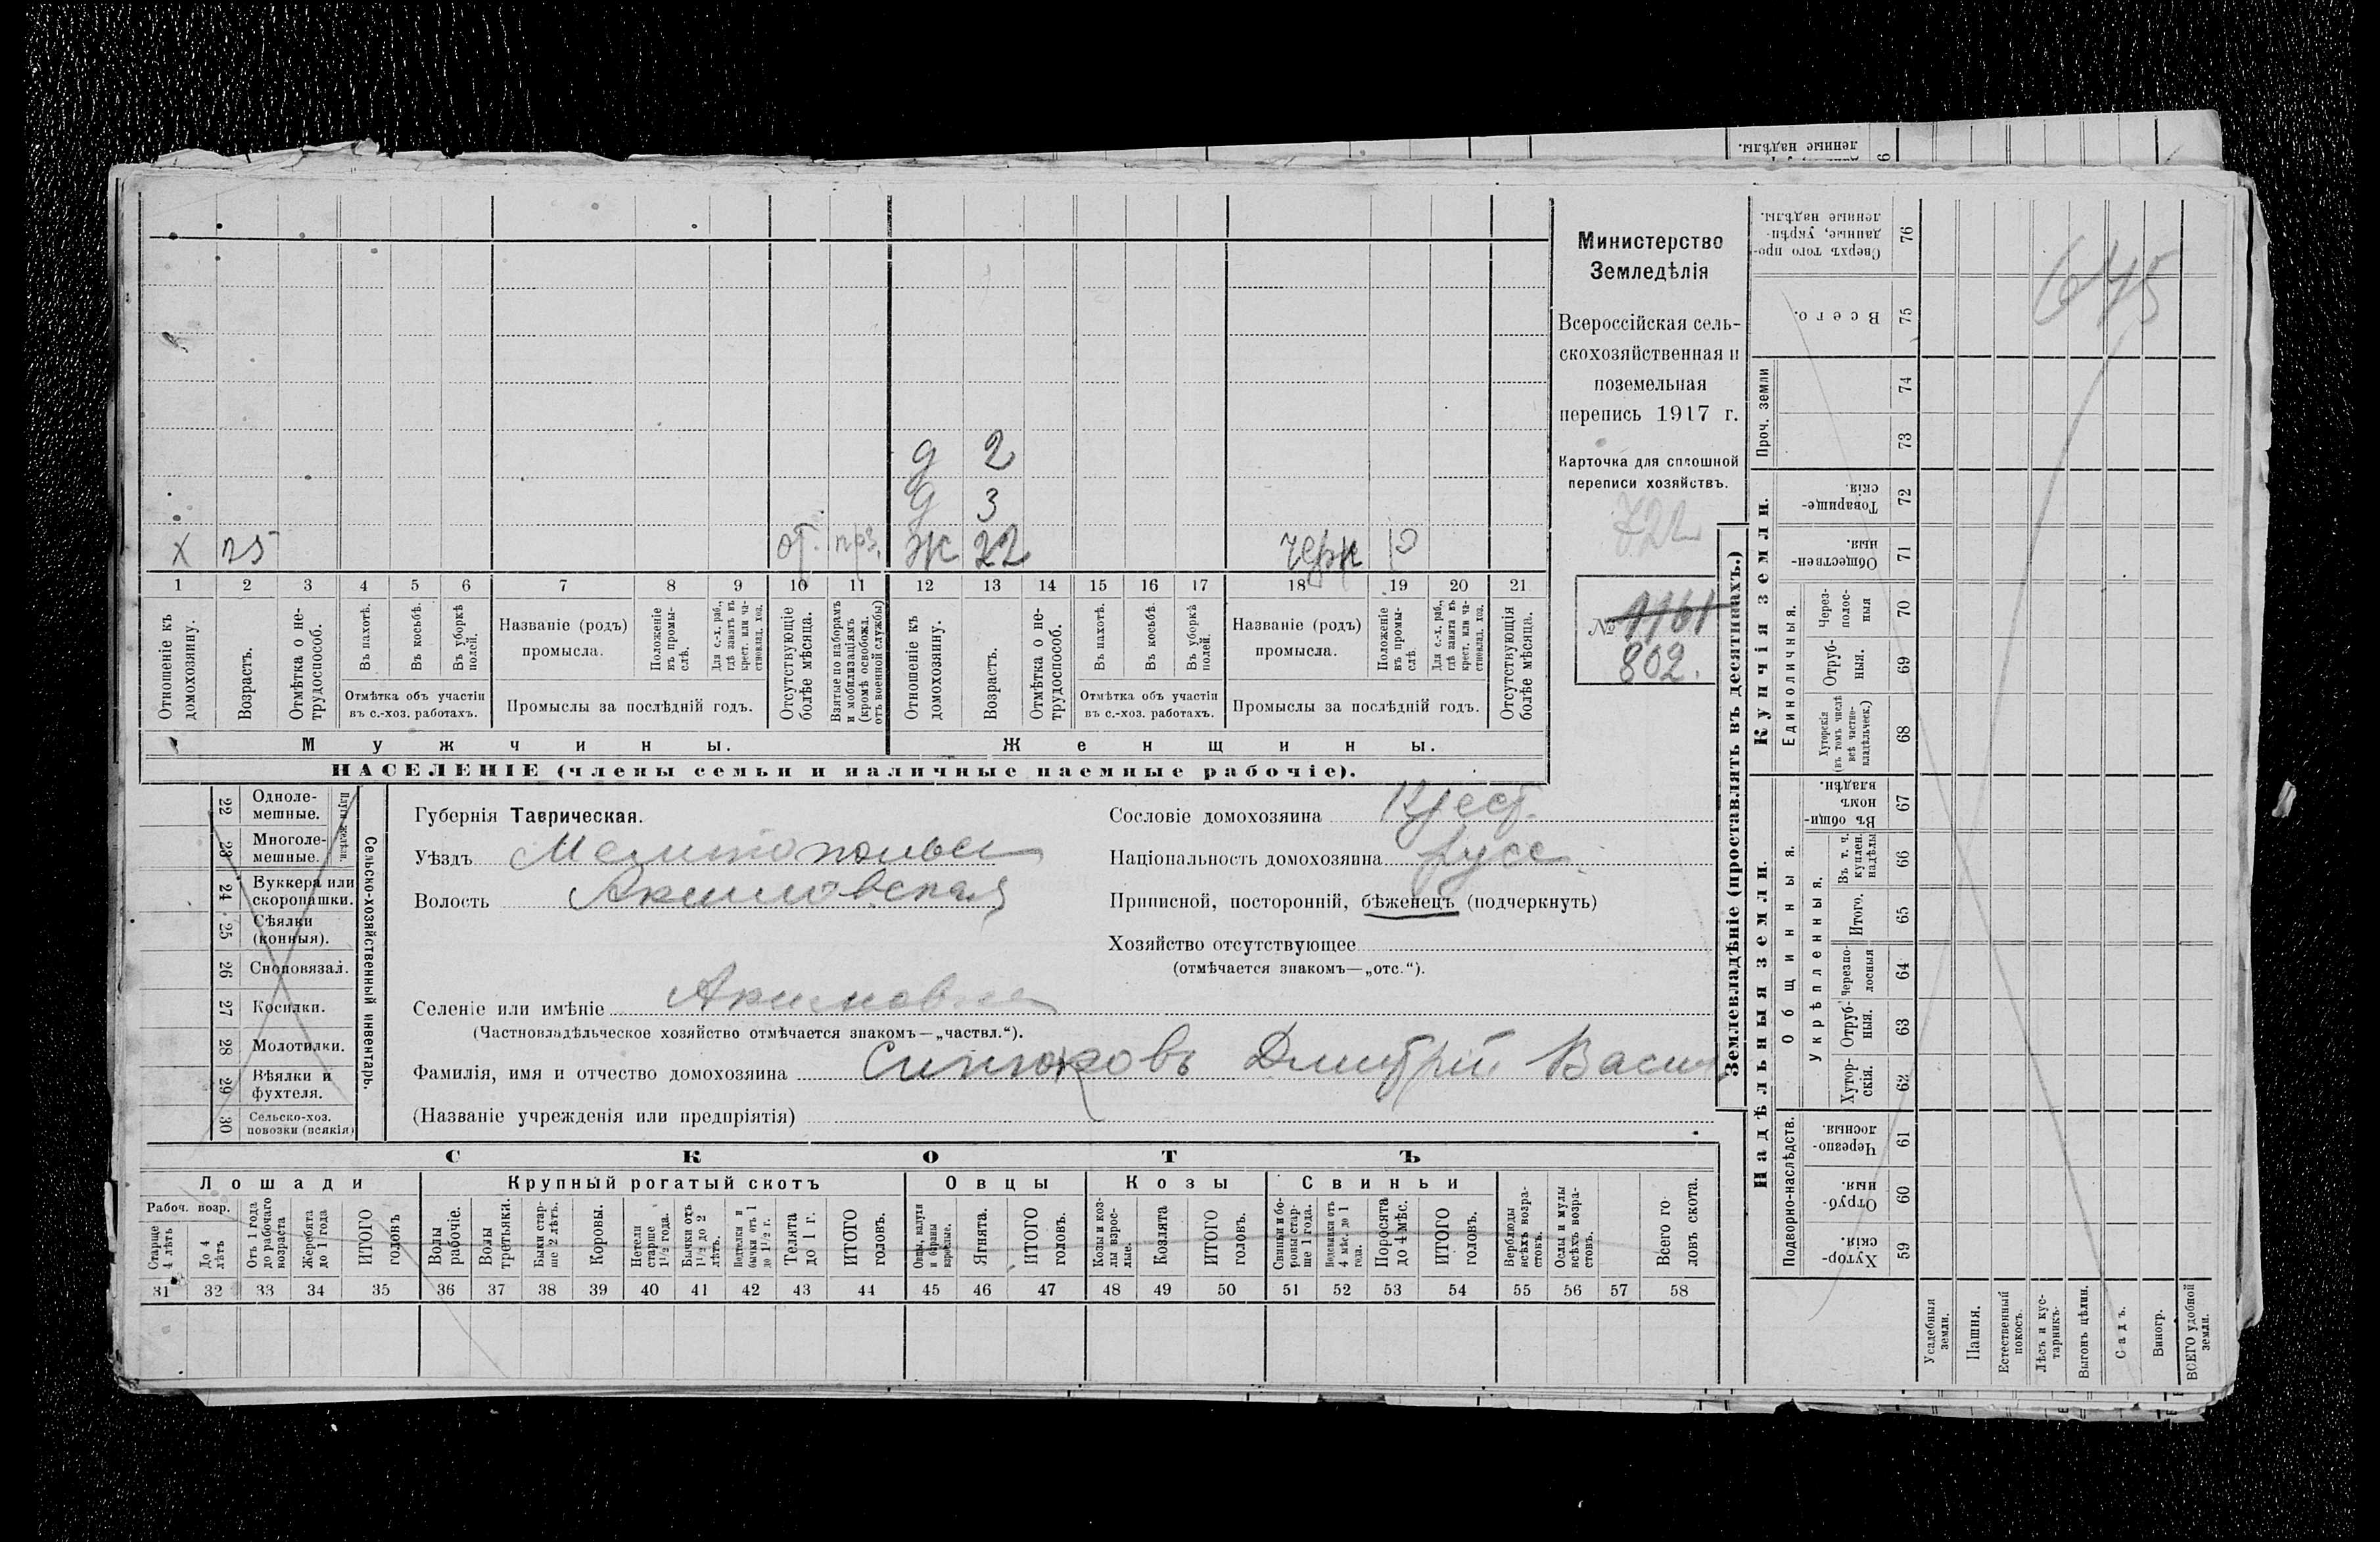 ленные надѣлы.
6
Министерство
Земледѣлія
Всероссійская сель-
скохозяйственная и
поземельная
перепись 1917 г.
Карточка для сплошной
переписи хозяйствъ.
722
№ 1161
802.
д 2
д 3
х 25 от. прз. ж 22 черк р
1 2 3 4 5 6 7 8 9 10 11 12 13 14 15 16 17 18 19 20 21
Отношеніе къ домохозяину.
Возрастъ.
Отмѣтка о не-трудоспособ.
Въ пахотѣ.
Въ косьбѣ.
Въ уборкѣ полей.
Отмѣтка объ участіи
въ с.-хоз. работахъ.
Названіе (родъ)
промысла.
Положеніе въ промы-слѣ.
Для с.-х. раб., гдѣ занятъ въ крест. или ча-стновлад. хоз.
Промыслы за послѣдній годъ.
Отсутствующіе болѣе мѣсяца.
Взятые по наборамъ и мобилизаціямъ (кромѣ освобожд. отъ военной службы)
Отношеніе къ домохозяину.
Возрастъ.
Отмѣтка о не-трудоспособ.
Въ пахотѣ.
Въ косьбѣ.
Въ уборкѣ полей.
Отмѣтка объ участіи
въ с.-хоз. работахъ.
Названіе (родъ)
промысла.
Положеніе въ промы-слѣ.
Для с.-х. раб., гдѣ занята въ крест. или ча-стновлад. хоз.
Промыслы за послѣдній годъ.
Отсутствующія болѣе мѣсяца.
Мужчины.
Женщины.
НАСЕЛЕНІЕ (члены семьи и наличные наемные рабочіе).
22 Одноле-мешные.
23 Многоле-мешные.
Плуги желѣзн.
24 Буккера или скоропашки.
25 Сѣялки (конныя).
26 Сноповязал.
27 Косилки.
28 Молотилки.
29 Вѣялки и фухтеля.
30 Сельско-хоз. повозки (всякія)
Сельско-хозяйственный инвентарь.
Губернія Таврическая.
Уѣздъ Мелитопольс
Волость Акимовская
Селеніе или имѣніе Акимовка
(Частновладѣльческое хозяйство отмѣчается знакомъ—„частвл.“).
Фамилія, имя и отчество домохозяина Синюковъ Дмитрій Васил
(Названіе учрежденія или предпріятія)
Сословіе домохозяина Крест.
Національность домохозяина русс
Приписной, посторонній, бѣженецъ (подчеркнуть)
Хозяйство отсутствующее
(отмѣчается знакомъ—„отс.“).
СКОТЪ
Лошади
Крупный рогатый скотъ
Овцы
Козы
Свиньи
Рабоч. возр.
Старше 4 лѣтъ
До 4 лѣтъ
Отъ 1 года до рабочаго возраста
Жеребята до 1 года
ИТОГО головъ
Волы рабочіе.
Волы третьяки.
Быки стар-ше 2 лѣтъ.
Коровы.
Нетели старше 1½ года.
Бычки отъ 1½ до 2 лѣтъ.
Нетелки и бычки отъ 1 до 1½ г.
Телята до 1 г.
ИТОГО головъ.
Овцы, валухи и бараны взрослые.
Ягнята.
ИТОГО головъ.
Козы и коз-лы взрос-лые.
Козлята
ИТОГО головъ.
Свиньи и бо-ровы стар-ше 1 года.
Подсвинки отъ 4 мѣс. до 1 года.
Поросята до 4 мѣс.
ИТОГО головъ.
Верблюды всѣхъ возра-стовъ.
Ослы и мулы всѣхъ возра-стовъ.
Всего го-ловъ скота.
31 32 33 34 35 36 37 38 39 40 41 42 43 44 45 46 47 48 49 50 51 52 53 54 55 56 57 58
Землевладѣніе (проставлять въ десятинахъ.)
Надѣльныя земли.
Купчія земли.
Проч. земли
Подворно-наслѣдств.
Общинныя.
Укрѣпленныя.
Единоличныя.
Хутор-скія. 59
Отруб-ныя. 60
Черезпо-лосныя. 61
Хутор-скія. 62
Отруб-ныя. 63
Черезпо-лосныя 64
Итого. 65
Въ т. ч. куплен. надѣлы 66
Въ общи-номъ владѣн. 67
Хуторскія (въ томъ числѣ всѣ частно-владѣльческ.) 68
Отруб-ныя. 69
Через-полос-ныя 70
Обществен-ныя. 71
Товарище-скія. 72
73
74
Всего. 75
Сверхъ того про-данные, укрѣп-ленные надѣлы. 76
645
Усадебныя земли.
Пашня.
Естественный покосъ.
Лѣсъ и кус-тарникъ.
Выгонъ цѣлин.
Садъ.
Виногр.
ВСЕГО удобной земли.